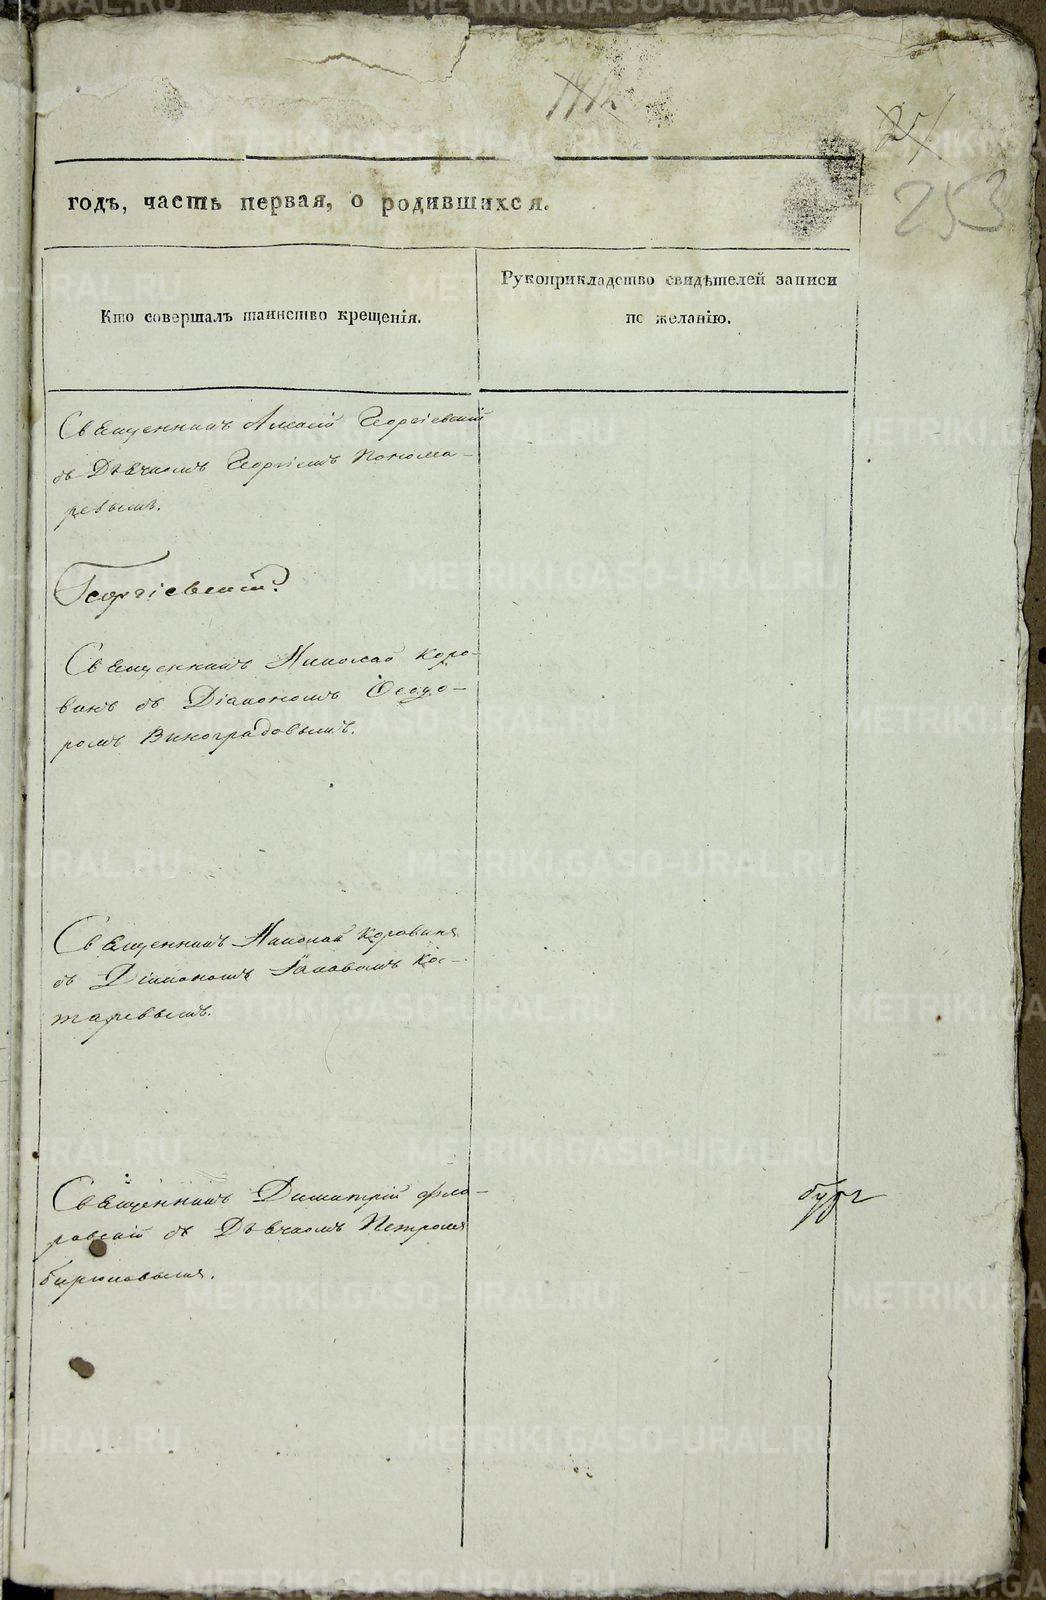 253
годъ, часть первая, о родившихся.
Кто совершалъ таинство крещенія.
Рукоприкладство свидѣтелей записи
по желанію.
Священникъ Алексій Георгіевскій
съ Дьячкомъ Георгіемъ Понома-
ревымъ.
Георгіевскій
Священникъ Николай Коро-
винъ съ Діакономъ Ѳеодо-
ромъ Виноградовымъ.
Священникъ Николай Коровинъ
съ Діакономъ Іаковомъ Кос-
таревымъ.
Священникъ Димитрій Фло-
ровскій съ Дьячкомъ Петромъ
Бирюковымъ.
METRIKI.GASO-URAL.RU